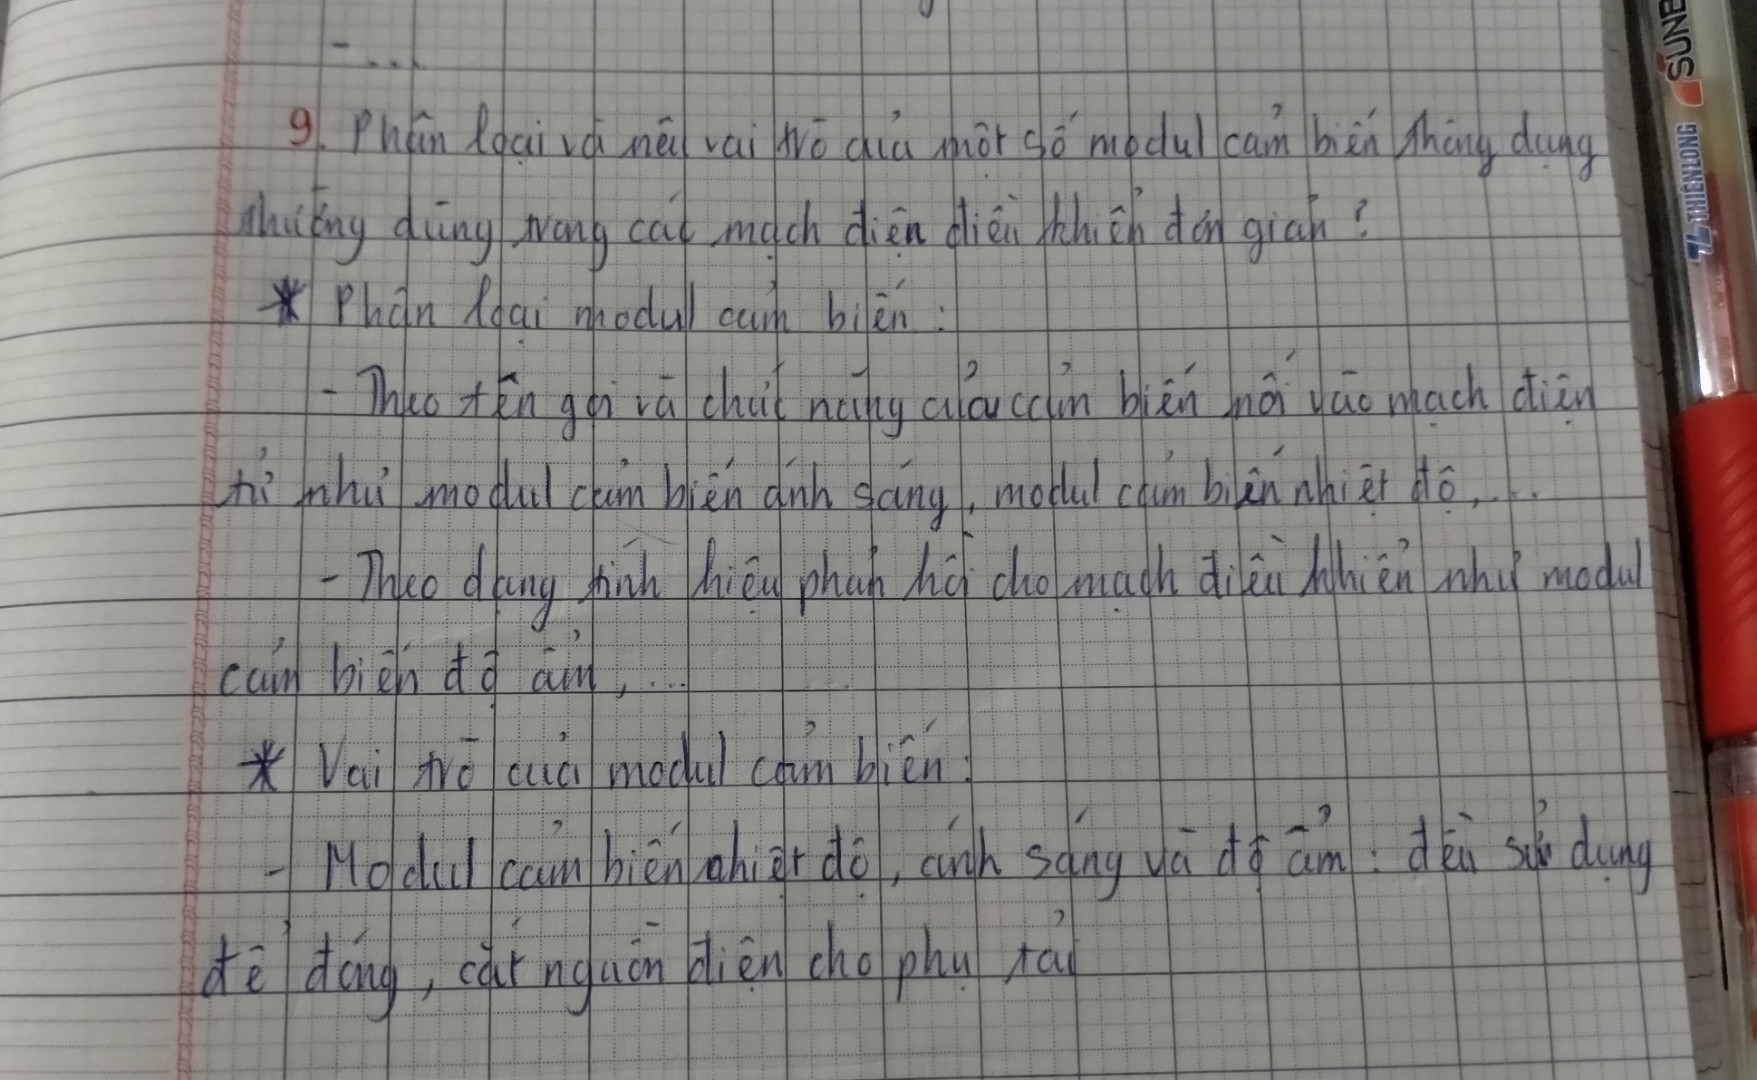 - ...
9. Phân loại và nêu vai trò của một số modul cảm biến thông dụng
thường dùng trong các mạch điện điều khiển đơn giản?
* Phân loại modul cảm biến:
- Theo tên gọi và chức năng của cảm biến nối vào mạch điện
tử như modul cảm biến ánh sáng, modul cảm biến nhiệt độ,...
- Theo dạng tính hiệu phản hồi cho mạch điều khiển như modul
cảm biến độ ẩm,...
* Vai trò của modul cảm biến:
- Modul cảm biến nhiệt độ, ánh sáng và độ ẩm: đều sử dụng
để đóng, cắt nguồn điện cho phụ tải
THIENLONG